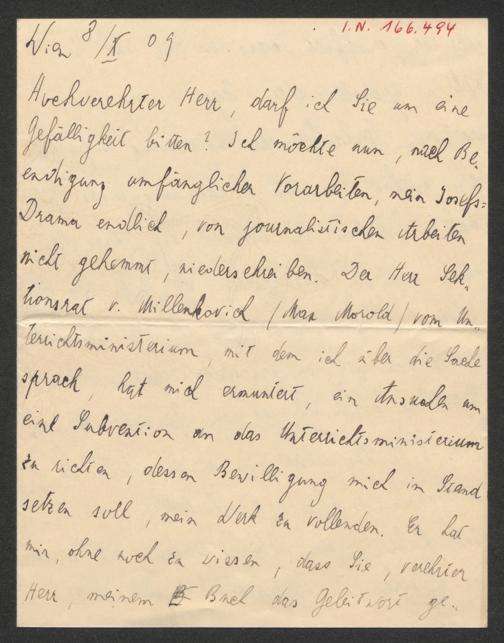 I.N. 166.494
Wien 8/X 09
Hochverehrter Herr, darf ich Sie um eine
Gefälligkeit bitten? Ich möchte nun, nach Be-
endigung umfänglicher Vorarbeiten, mein Josefs-
Drama endlich, von journalistischen Arbeiten
nicht gehemmt, niederschreiben. Der Herr Sek-
tionsrat v. Millenkovich (Max Morold) vom Un-
terrichtsministerium, mit dem ich über die Sache
sprach, hat mich ermuntert, ein Ansuchen um
eine Subvention an das Unterrichtsministerium
zu richten, dessen Bewilligung mich in Stand
setzen soll, mein Werk zu vollenden. Er hat
mir, ohne noch zu wissen, dass Sie, verehrter
Herr, meinem Buch das Geleitwort ge-